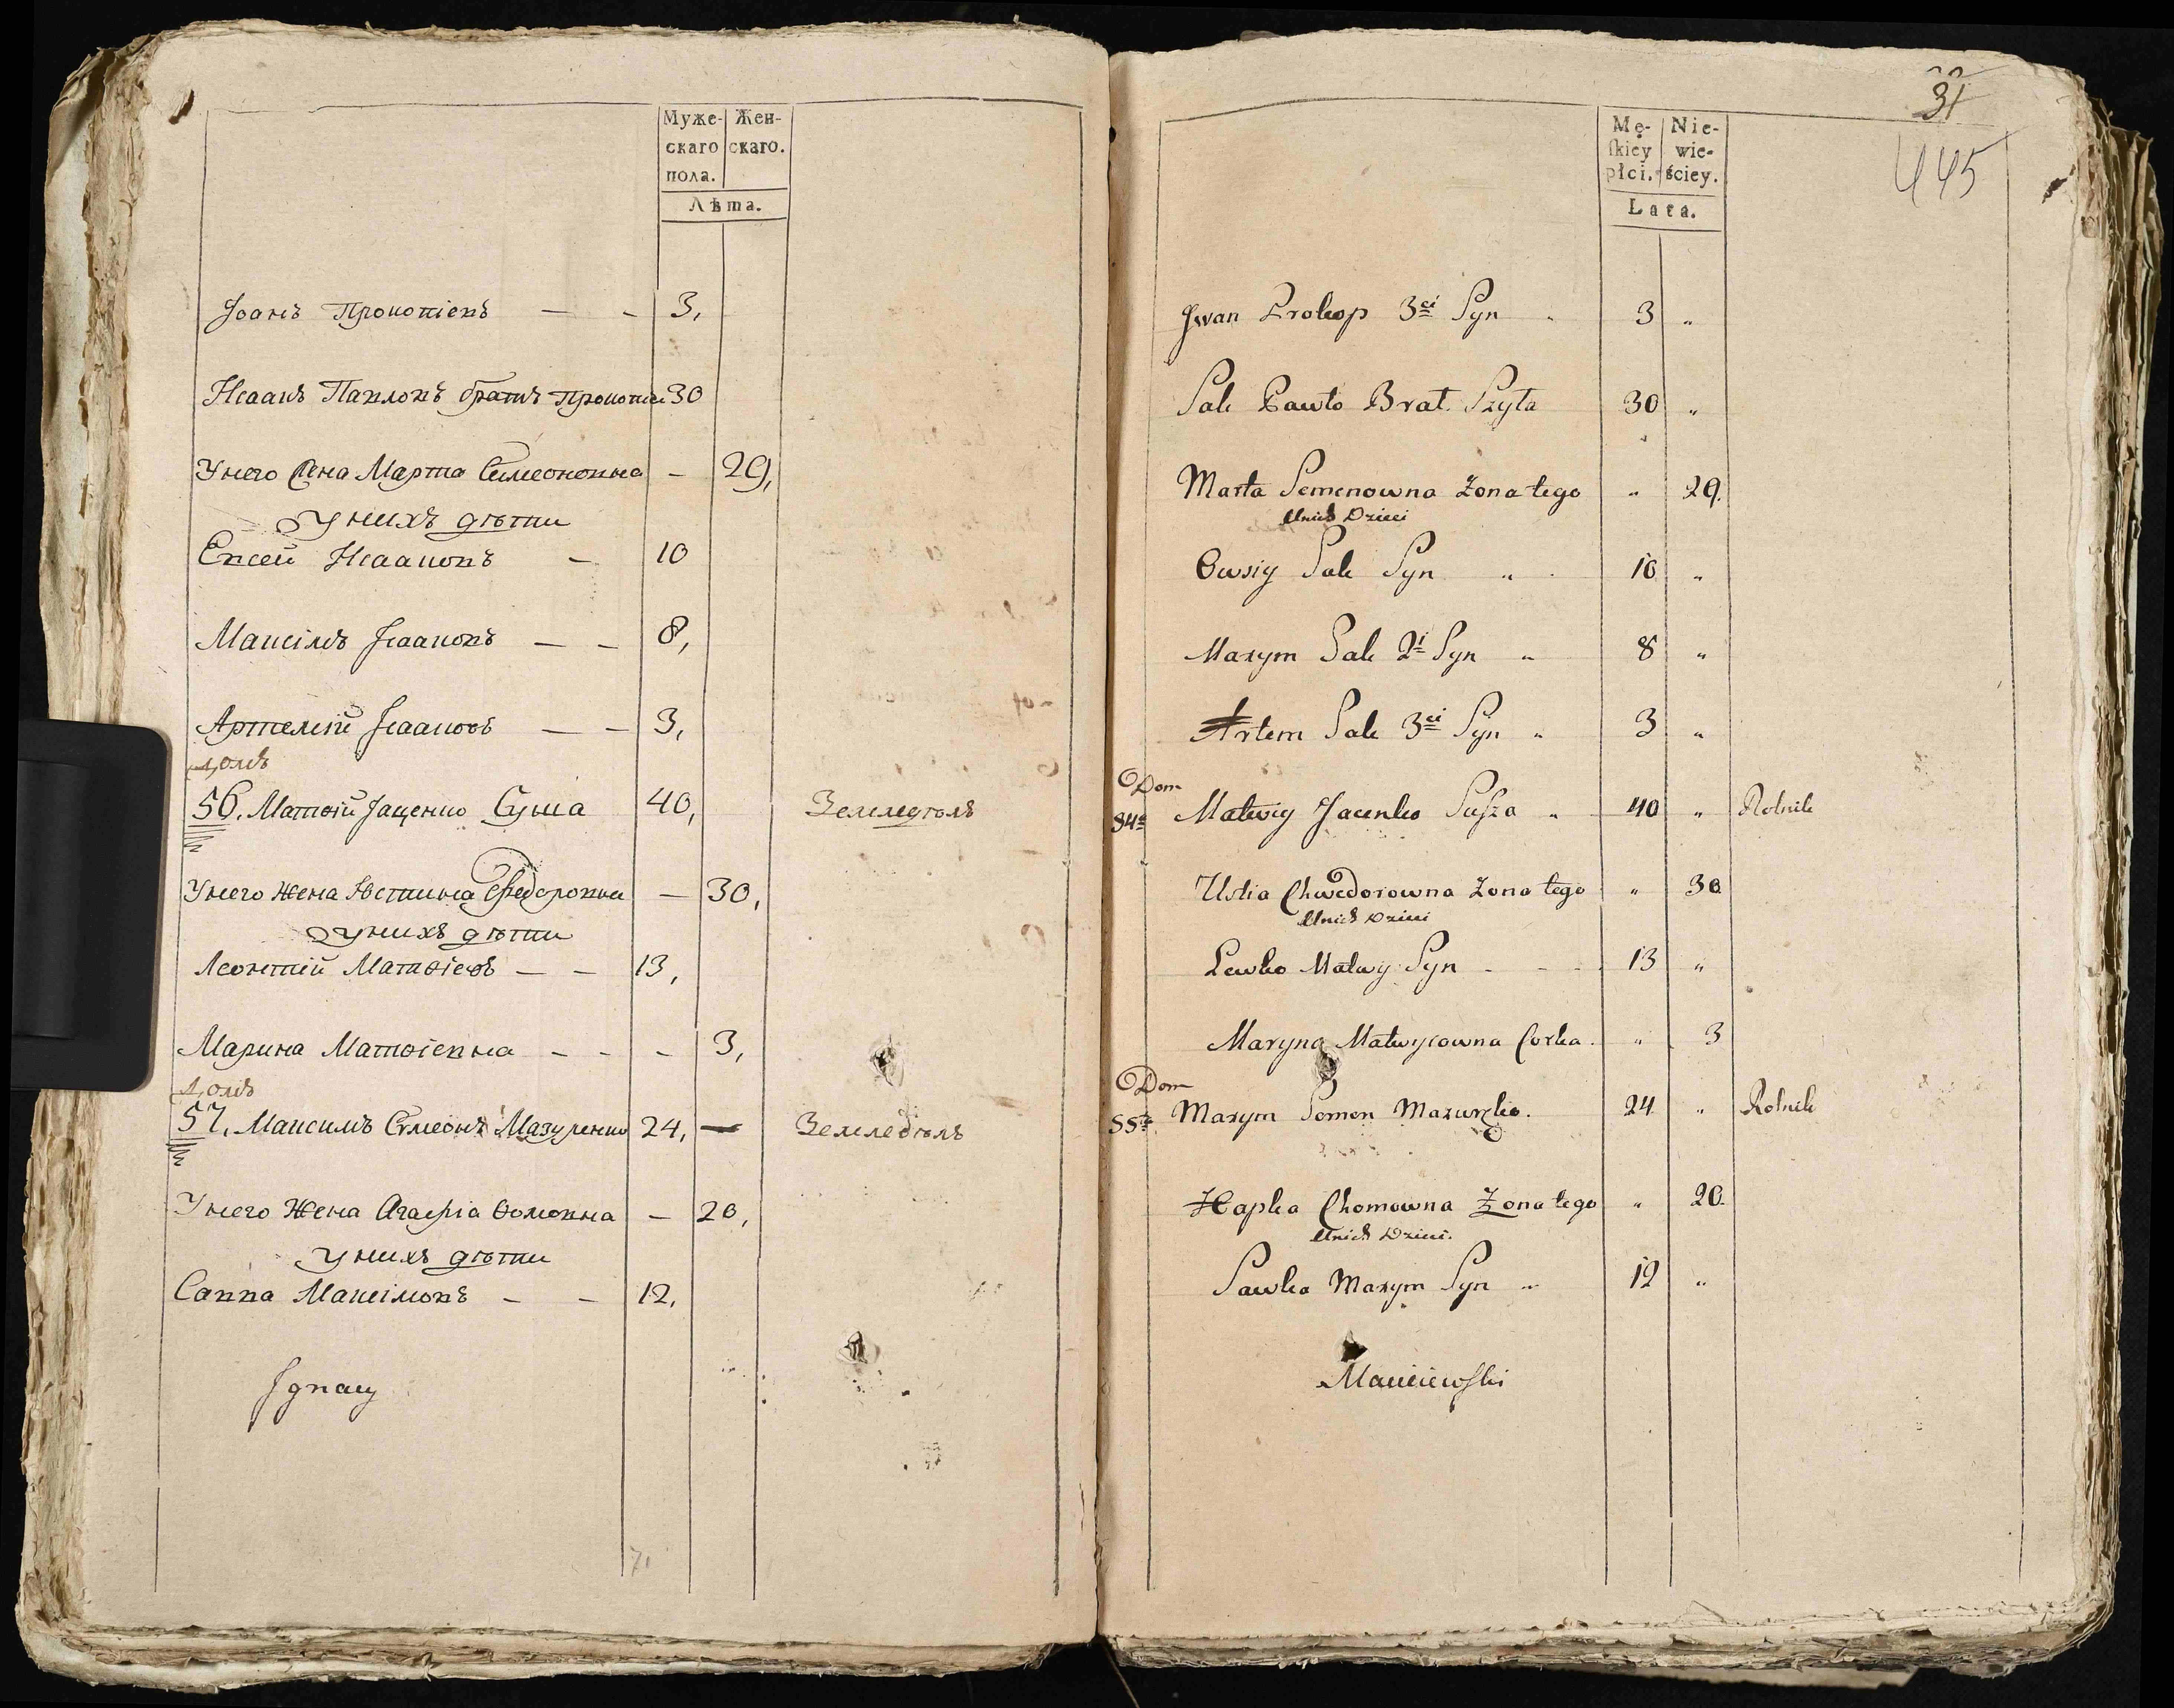 Муже-
скаго
пола.
Жен-
скаго.
Лѣта.
Іоанъ Прокопіевъ — - 3,
Исаакъ Павловъ братъ Прокопіа 30
У него Жена Марта Симеоновна — 29,
У нихъ дѣти
Евсей Исааковъ — 10
Максімъ Ісааковъ — — 8,
Артемій Ісааковъ — — 3,
Домъ
56. Матѳій Яценко Суша 40, Земледѣлъ
У него Жена Юстина Ѳедоровна — 30,
У нихъ дѣти
Леонтій Матѳіевъ — — 13,
Марина Матѳіевна - - - 3,
Домъ
57. Максимъ Симеонъ Мазуренко 24, — Земледѣлъ
У него Жена Агафіа Ѳомовна — 20,
У нихъ дѣти
Савва Максімовъ - - 12,
Ignacy
31
445
Mę-
skiey
płci.
Nie-
wie-
ściey.
Lata.
Jwan Prokop 3ci Syn 3 "
Sak Pawło Brat Szyta 30 "
Marta Semenowna Zona tego " 29.
U nich Dzieci
Owsiy Sak Syn " 10 "
Maxym Sak 2i Syn " 8 "
Artem Sak 3ci Syn " 3 "
Dom
Matwiy Jacenko Susza " 40 " Rolnik
Ustia Chwedorowna Zona tego " 30
U nich Dzieci
Lewko Matwy Syn - - - 13 "
Maryna Matwyiowna Corka. " 3
Dom
55te Maxym Semen Mazurko. 24 " Rolnik
Hapka Chomowna Zona tego " 20.
U nich Dzieci.
Sawka Maxym Syn " 12 "
Macieiewski